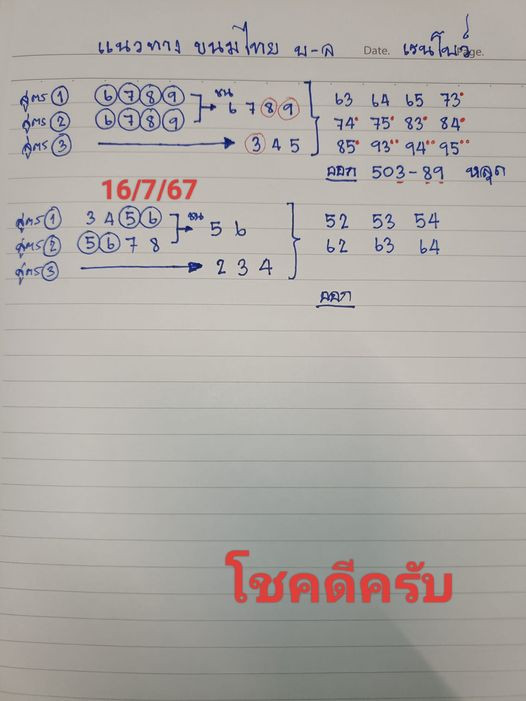 แนวทาง ขนมไทย บ-ล Date. เรนโบว์ Page.
สูตร 1 6 7 8 9 ชน 6 7 8 9 63 64 65 73
สูตร 2 6 7 8 9 74 75 83 84
สูตร 3 3 4 5 85 93 94 95
ออก 503-89 หลุด
16/7/67
สูตร 1 3 4 5 6 ชน 5 6 52 53 54
สูตร 2 5 6 7 8 62 63 64
สูตร 3 2 3 4
ออก
โชคดีครับ